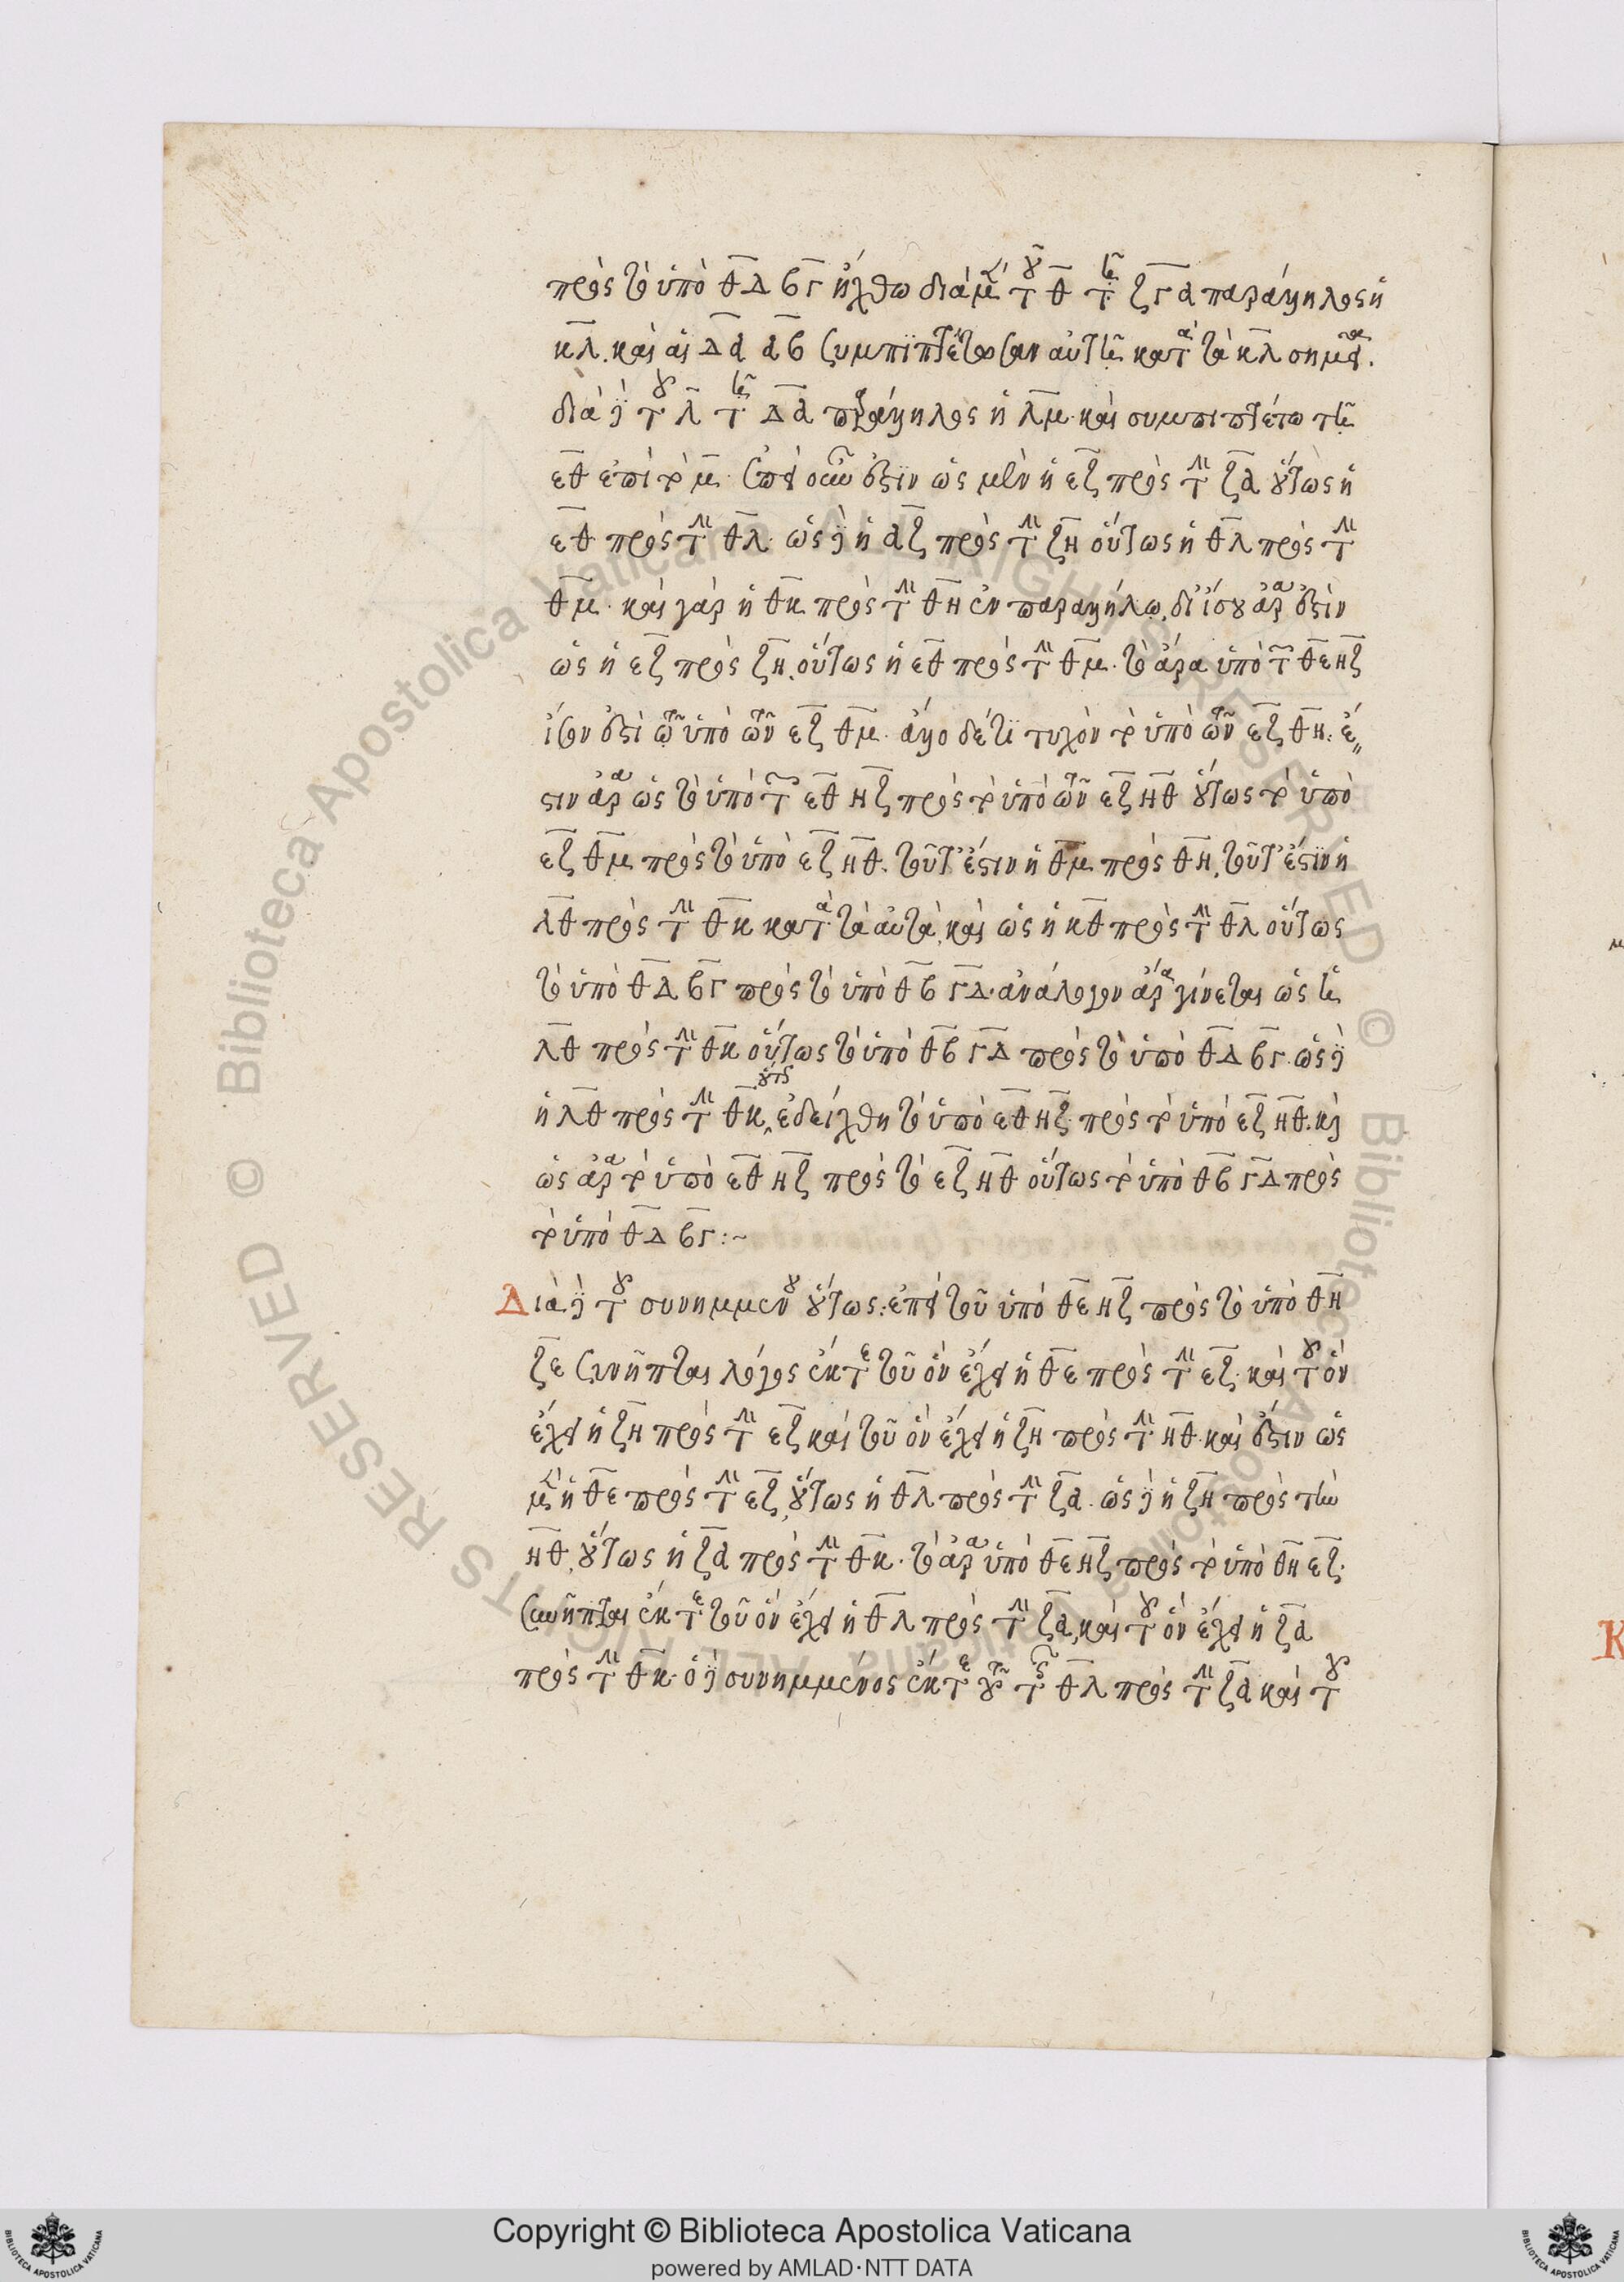 πρὸς τὸ ὑπὸ ΘΔ ΒΓ ἤχθω διὰ μὲν τοῦ Θ τῇ ΖΓΑ παράλληλος ἡ
ΚΛ. καὶ αἱ ΔΑ ΑΒ συμπιπτέτωσαν αὐτῇ κατὰ τὰ ΚΛ σημεῖα.
διὰ δὲ τοῦ Λ τῇ ΔΑ παράλληλος ἡ ΛΜ. καὶ συμπιπτέτω τῇ
ΕΘ ἐπὶ τὸ Μ. ἐπεὶ οὖν ἐστιν ὡς μὲν ἡ ΕΖ πρὸς τὴν ΖΑ οὕτως ἡ
ΕΘ πρὸς τὴν ΘΛ. ὡς δὲ ἡ ΑΖ πρὸς τὴν ΖΗ οὕτως ἡ ΘΛ πρὸς τὴν
ΘΜ. καὶ γὰρ ἡ ΘΚ πρὸς τὴν ΘΗ ἐν παραλλήλῳ. δι' ἴσου ἄρα ἐστὶν
ὡς ἡ ΕΖ πρὸς ΖΗ, οὕτως ἡ ΕΘ πρὸς τὴν ΘΜ. τὸ ἄρα ὑπὸ τῶν ΘΕ ΗΖ
ἴσον ἐστὶ τῷ ὑπὸ τῶν ΕΖ ΘΜ. ἄλλο δέ τι τυχὸν τὸ ὑπὸ τῶν ΕΖ ΘΗ. ἔ
στιν ἄρα ὡς τὸ ὑπὸ τῶν ΕΘ ΗΖ πρὸς τὸ ὑπὸ τῶν ΕΖ ΗΘ οὕτως τὸ ὑπὸ
ΕΖ ΘΜ πρὸς τὸ ὑπὸ ΕΖ ΗΘ. τοῦτ' ἔστιν ἡ ΘΜ πρὸς ΘΗ, τοῦτ' ἔστιν ἡ
ΛΘ πρὸς τὴν ΘΚ κατὰ τὰ αὐτὰ, καὶ ὡς ἡ ΚΘ πρὸς τὴν ΘΛ οὕτως
τὸ ὑπὸ ΘΔ ΒΓ πρὸς τὸ ὑπὸ ΘΒ ΓΔ. ἀνάλογον ἄρα γίνεται ὡς ἡ
ΛΘ πρὸς τὴν ΘΚ οὕτως τὸ ὑπὸ ΘΒ ΓΔ πρὸς τὸ ὑπὸ ΘΔ ΒΓ. ὡς δὲ
ἡ ΛΘ πρὸς τὴν ΘΚ, οὕτως ἐδείχθη τὸ ὑπὸ ΕΘ ΗΖ πρὸς τὸ ὑπὸ ΕΖ ΗΘ. καὶ
ὡς ἄρα τὸ ὑπὸ ΕΘ ΗΖ πρὸς τὸ ΕΖ ΗΘ οὕτως τὸ ὑπὸ ΘΒ ΓΔ πρὸς
τὸ ὑπὸ ΘΔ ΒΓ :~
Διὰ δὲ τοῦ συνημμένου οὕτως: ἐπεὶ τοῦ ὑπὸ ΘΕ ΗΖ πρὸς τὸ ὑπὸ ΘΗ
ΖΕ συνῆπται λόγος ἔκ τε τοῦ ὃν ἔχει ἡ ΘΕ πρὸς τὴν ΕΖ. καὶ τοῦ ὃν
ἔχει ἡ ΖΗ πρὸς τὴν ΕΖ καὶ τοῦ ὃν ἔχει ἡ ΖΗ πρὸς τὴν ΗΘ. καὶ ἔστιν ὡς
μὲν ἡ ΘΕ πρὸς τὴν ΕΖ, οὕτως ἡ ΘΛ πρὸς τὴν ΖΑ. ὡς δὲ ἡ ΖΗ πρὸς τὴν
ΗΘ, οὕτως ἡ ΖΑ πρὸς τὴν ΘΚ. τὸ ἄρα ὑπὸ ΘΕ ΗΖ πρὸς τὸ ὑπὸ ΘΗ ΕΖ.
συνῆπται ἔκ τε τοῦ ὃν ἔχει ἡ ΘΛ πρὸς τὴν ΖΑ, καὶ τοῦ ὃν ἔχει ἡ ΖΑ
πρὸς τὴν ΘΚ. ὁ δὲ συνημμένος ἔκ τε τοῦ τῆς ΘΛ πρὸς τὴν ΖΑ καὶ τοῦ
Κ
© Biblioteca Apostolica Vaticana ALL RIGHTS RESERVED © Biblioteca Apostolica Vaticana ALL RIGHTS RESERVED
Copyright © Biblioteca Apostolica Vaticana
powered by AMLAD·NTT DATA